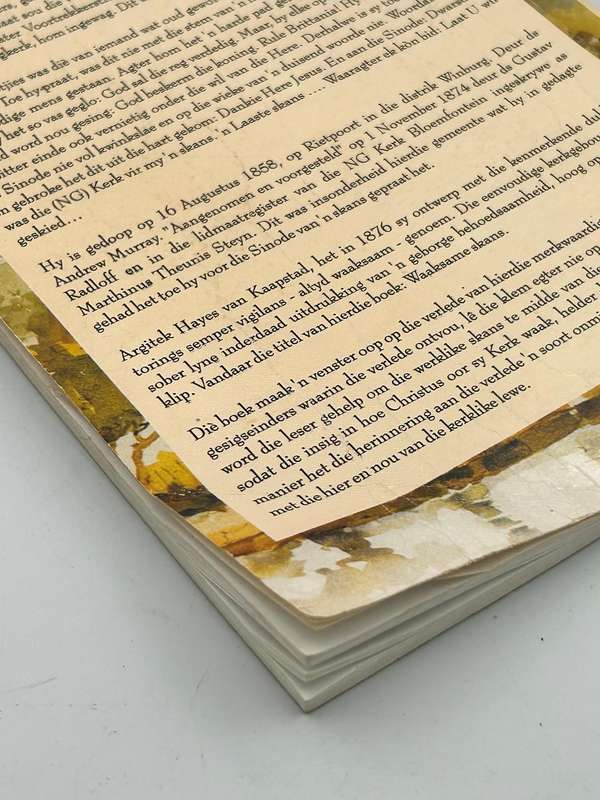 gkerk, hom ingewag. Dit
tjies was dié van iemand wat oud gewor
Toe hy praat, was dit nie met die stem van 'n
dige mens gestaan. Agter hom het 'n harde pad
y het so vas geglo: God sal die reg verdedig. Maar hy alles op
d word nou gesing: God beskerm die koning. Rule Brittania! Hy
bitter einde ook vernietig onder die wil van die Here. Derhalwe is sy
Sinode nie vol kwinkelae en op die wieke van 'n duisend woorde nie. Woorde
n gebroke het dit uit die hart gekom: Dankie Here Jesus. En aan die Sinode: Dwarst
was die (NG) Kerk vir my 'n skans. 'n Laaste skans .... Waaragter ek kon bid: Laat U wil
geskied....
Hy is gedoop op 16 Augustus 1858, op Rietpoort in die distrik Winburg. Deur ds
Andrew Murray. "Aangenomen en voorgesteld" op 1 November 1874 deur ds Gustav
Radloff en in die lidmaatregister van die NG Kerk Bloemfontein ingeskrywe as
Marthinus Theunis Steyn. Dit was insonderheid hierdie gemeente wat hy in gedagte
gehad het toe hy voor die Sinode van 'n skans gepraat het.
Argitek Hayes van Kaapstad, het in 1876 sy ontwerp met die kenmerkende
torings semper vigilans - altyd waaksaam - genoem. Die eenvoudige kerkgebou
sober lyne inderdaad uitdrukking van 'n geborge behoedsaamheid, hoog op
klip. Vandaar die titel van hierdie boek: Waaksame skans.
Diè boek maak 'n venster oop op die verlede van hierdie merkwaardige
gesigseinders waarin die verlede ontvou, lê die klem egter nie op
word die leser gehelp om die werklike skans te midde van die
sodat die insig in hoe Christus oor sy Kerk waak, helder
manier het die herinnering aan die verlede 'n soort onmi
met die hier en nou van die kerklike lewe.